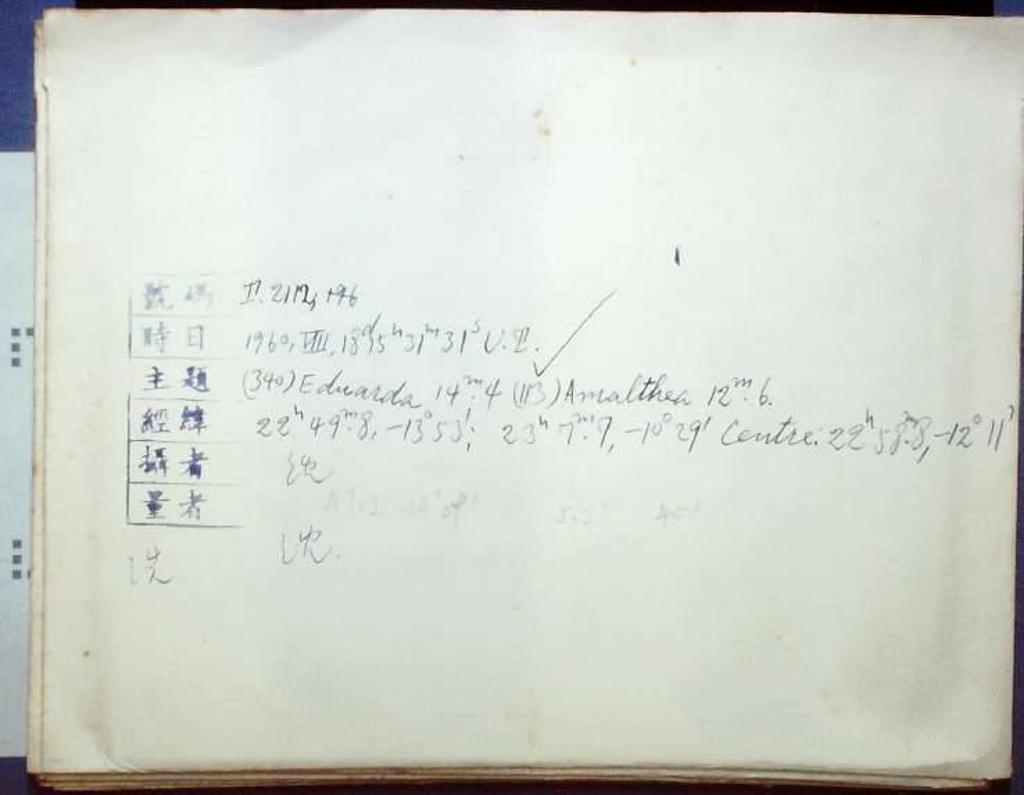 號碼
時日 1960, VIII, 18ᵈ15ʰ31ᵐ31ˢ U.T.
主題 (340) Eduarda 14ᵐ.4 (113) Amalthea 12ᵐ.6.
經緯 22ʰ49ᵐ.8, -13°53'; 23ʰ7ᵐ.9, -10°29' Centre: 22ʰ58ᵐ.8, -12°11'
攝者 沈
量者
沈.
洗